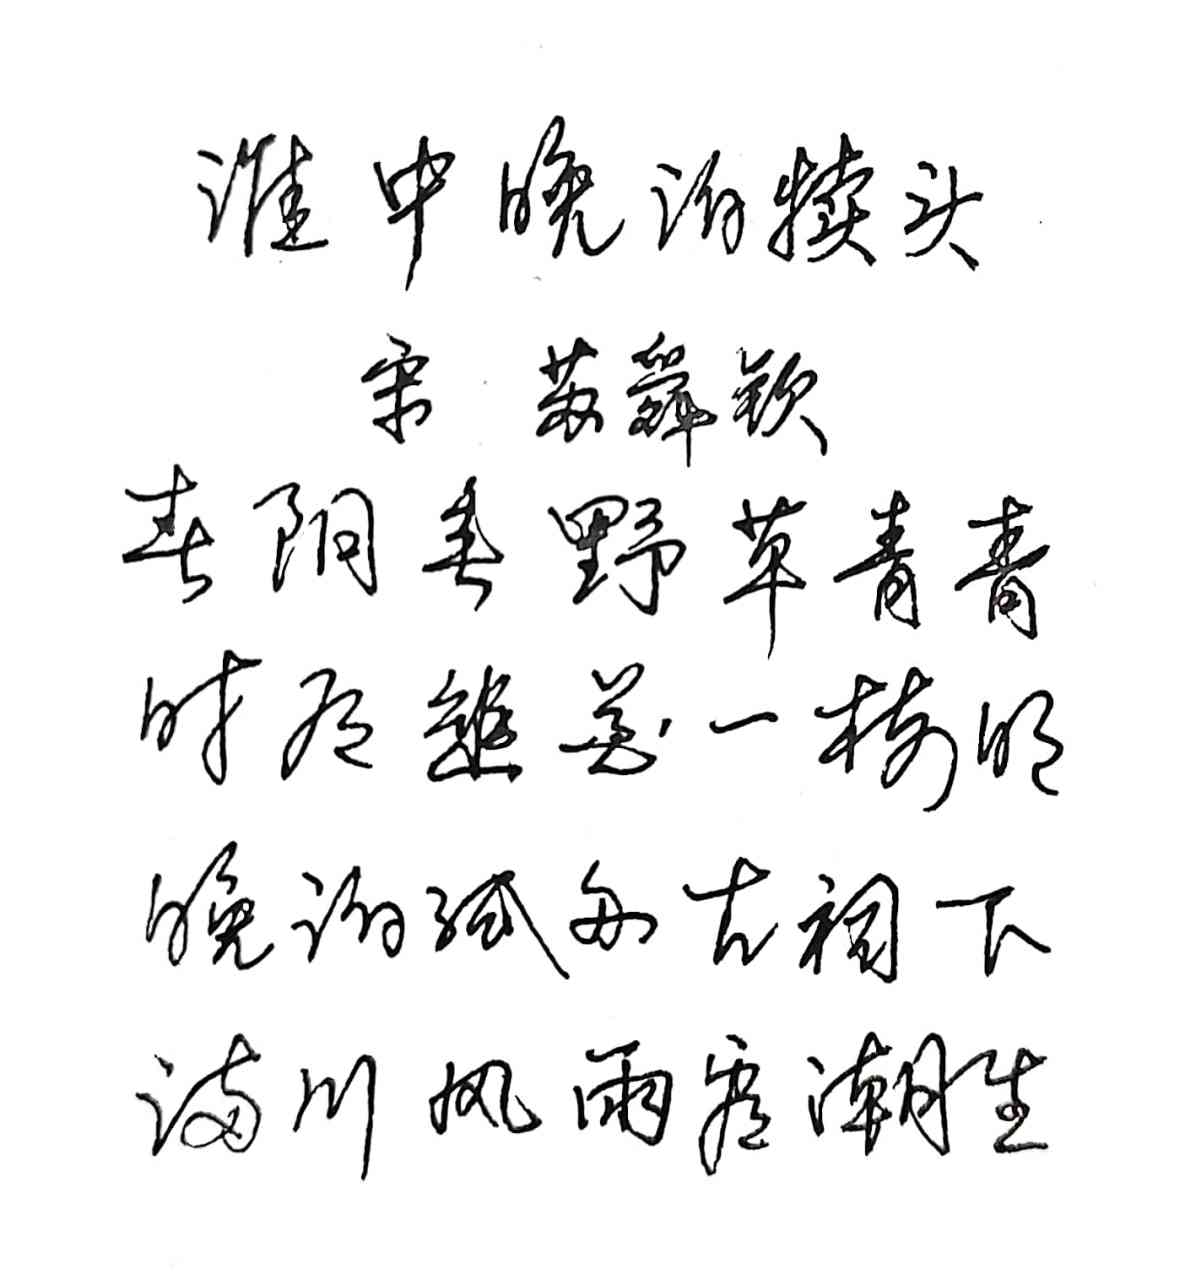 淮中晚泊犊头
宋 苏舜钦
春阴垂野草青青
时有幽花一树明
晚泊孤舟古祠下
满川风雨看潮生